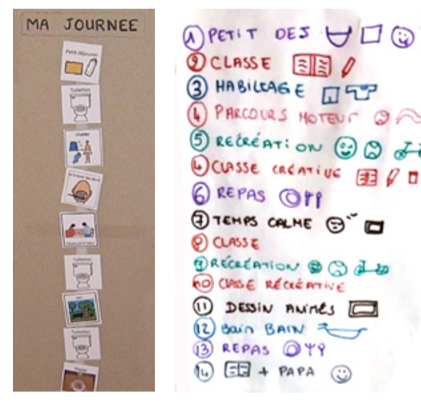 MA JOURNEE
Petit déjeuner
Toilettes
Toilettes
Toilettes
1 PETIT DES
2 CLASSE
3 HABILLAGE
4 PARCOURS MOTEUR
5 RECRÉATION
4 CLASSE CRÉATIVE
6 REPAS
7 TEMPS CALME
8 CLASSE
9 RÉCRÉATION
10 CLASSE RÉCRÉATIVE
11 DESSIN ANIMÉS
12 Bain BAIN
13 REPAS
14 + PAPA